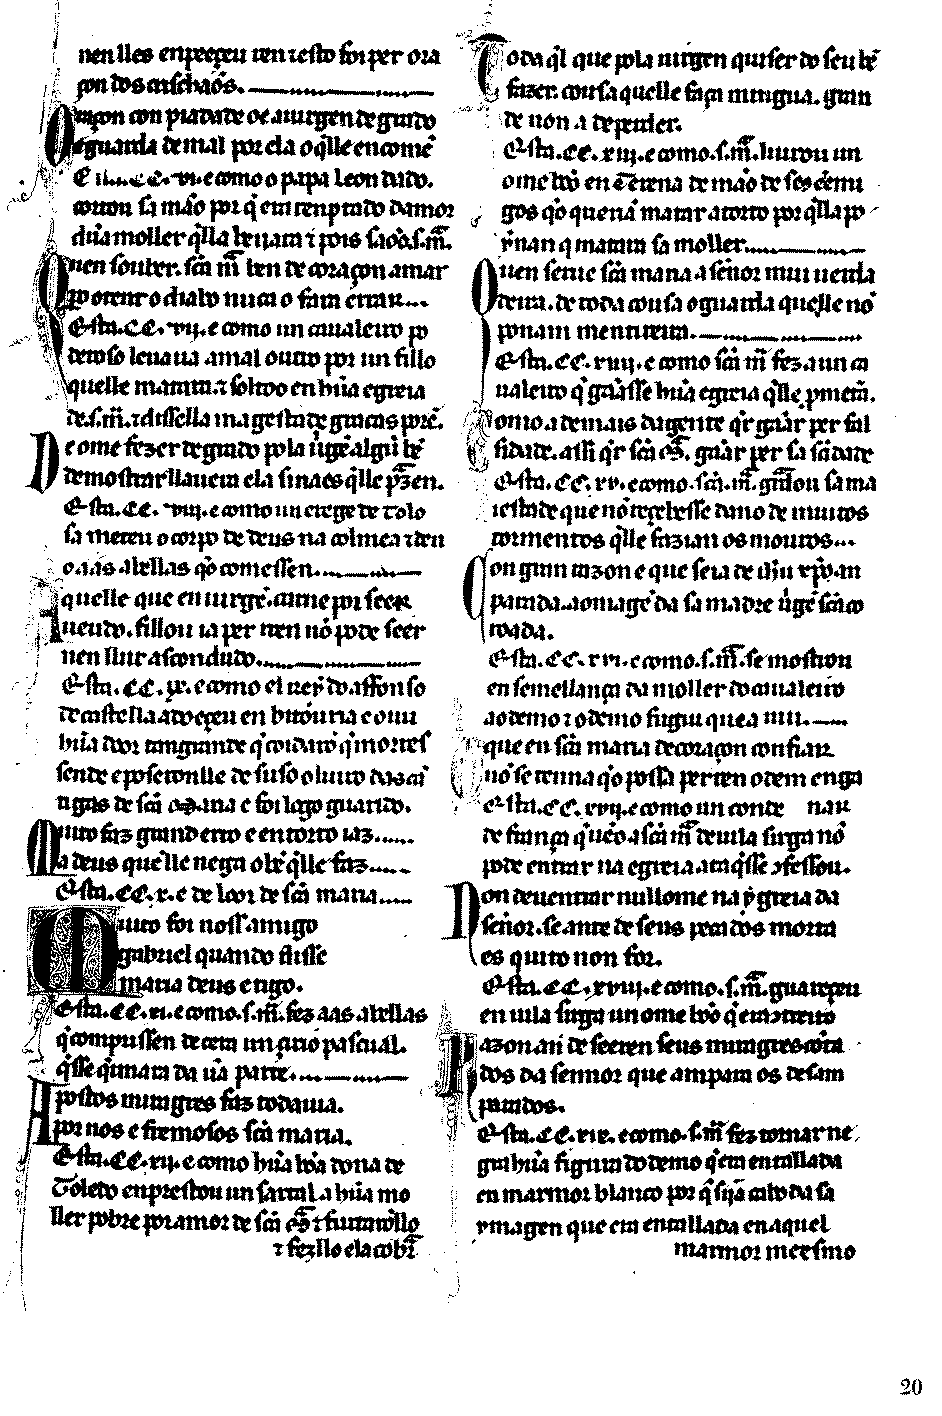 nen lles enpeeçeu nen testo foi per ora
çon dos crischãos.
Oraçon con piadade oe a uirgen de grado
e guarda de mal por ela o q̇lle encomẽ
E CC. vi. e como o papa Leon dado.
cortou sa mão por q̇ era tenptado damor
dũa moller q̇lla beiiara ⁊ pois sãoo s. m̃.
Quen souber. scã m̃ ben de coraçon amar
pero tente o diabo nunca o fara errar
Esta. CC. vij. e como un caualeiro po
deroso leuaua a mal outro por un fillo
quelle matara. ⁊ soltoo en hũa egreia
de. s. m̃. ⁊ dissella magestade gracias porẽ.
De ome fezer de grado pola ũgẽ algũ bẽ
demostrar llauera ela sinaes q̇lle praz en.
Esta. CC. viij. e como un erege de Tolo
sa meteu o corpo de deus na colmea ⁊ deu
o aas abellas q̇o comessen.
Aquelle que en uirgẽ. carne por seer
ueudo. fillou ia per ren nõ pode seer
nen llur ascondudo.
Esta. CC. ix. e como el rey do affonso
de castella adoeçeu en bitoria e ouu
hũa door tan grande q̇ coidarõ q̇ morres
sende e poseronlle de suso o liuro das cã
tigas de scã maria e foi logo guarido.
Muito faz grand erro e en torto iaz
a deus quelle nega o bẽ q̇lle faz
Esta. CC. x. e de loor de scã maria
Muito foi noss amigo
gabriel quando disse
maria deus e tigo.
Esta. CC. xi. e como. s. m̃. fez aas abellas
q̇ compussen de cera un çirio pascual.
q̇sse q̇imara da ũa parte.
Apostos miragres faz todauia.
por nos e fremosos scã maria.
Esta. CC. xij. e como hũa bõa dona de
Toledo enprestou un sartal a hũa mo
ller pobre por amor de scã m̃ ⁊ furtarõllo
⁊ fezllo ela cobr̃
Toda q̇l que pola uirgen quiser do seu bẽ
fazer. cousa quelle faça mingua. gran
de non a de perder.
Esta. CC. xiij. e como. s. m̃. liurou un
ome bõo en Terena de mão de seos ẽemi
gos q̇o querıã matar a torto por q̇lla po
ỹnan q matara sa moller.
Quen serue scã maria a sẽnor mui uerda
deira. de toda cousa o guarda quelle nõ
ponam mentireira.
Esta. CC. xiiij. e como scã m̃ fez a un ca
ualeiro q̇ gãasse hũa egreia q̇lle p̃meterã.
Como a demais da gente q̇r gãar per fal
sidade. assi q̇r scã m̃. gãar per sa sã̃dade
Esta. CC. xv. e como. scã. m̃. gardou sa ma
iestade que nõ reçebesse dano de muitos
tormentos q̇lle fazian os mouros
Con gran razon e que seia de ihũ xp̃o. an
parada. a omagẽ da sa madre ũgẽ scã co
roada.
Esta. CC. xvi. e como. s. m̃. se mostrou
en semellança da moller do caualeiro
ao demo ⁊ o demo fugiu que a uiu.
que en scã maria de coraçon confiar
nõ se tenna q̇o possa per ren o dem enga
Esta. CC. xvij. e como un conde nar
de frança q̇ uẽo a scã m̃ de uila sirga nõ
pode entrar na egreia. ata q̇sse ɔfessou.
Non deuentrar null ome na ygreia da
sẽnor. se ante de seus pecados morta
es quito non for.
Esta. CC. xviij. e como. s. m̃. guareçeu
en uila sirga un ome bõo q̇ era ɔtreito
Razon an de seeren seus miragres cõta
dos da sennor que ampara os desam
parados.
Esta. CC. xix. e como. s. m̃ fez tornar ne
gra hũa figura do demo q̇ era entallada
en marmor blanco por q̇ sijã cabo da sa
ymagen que era entallada en aquel
marmor meesmo
20